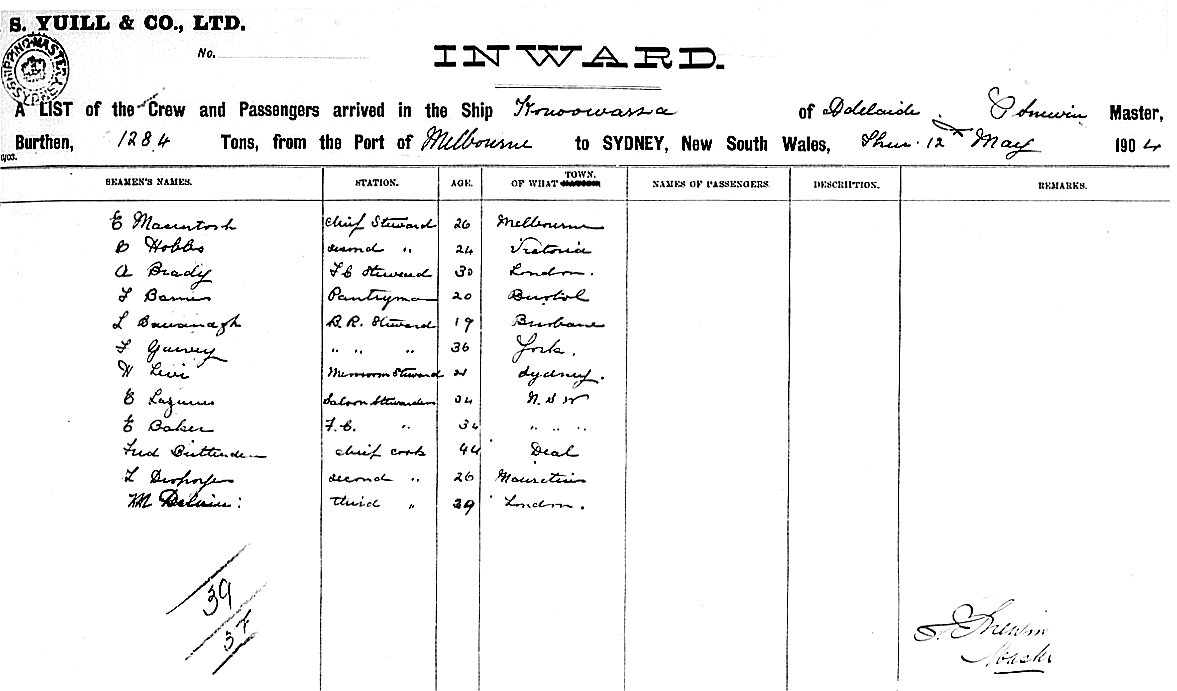 S. YUILL & CO., LTD.
SHIPPING MASTER SYDNEY
No.
INWARD.
A LIST of the Crew and Passengers arrived in the Ship of Adelaide. Master,
Burthen, 1284 Tons, from the Port of Melbourne to SYDNEY, New South Wales, 12 May 1904
SEAMEN'S NAMES. STATION. AGE. OF WHAT TOWN. NAMES OF PASSENGERS. DESCRIPTION. REMARKS.
E Macintosh chief Steward 26 Melbourne
B Hobbs second " 24 Victoria
A Brady F C Steward 30 London.
F Pantryman 20 Bristol
L B. R. Steward 19 Brisbane
F Garvey " " " 36 York.
H Levi Messroom Steward 21 Sydney.
E Lazarus Saloon Stewardess 34 N. S W
E Baker F. C. " 34 " " "
Fred Chief cook 44 Deal
L second " 26 Mauritius
WM third " 39 London.
39
37